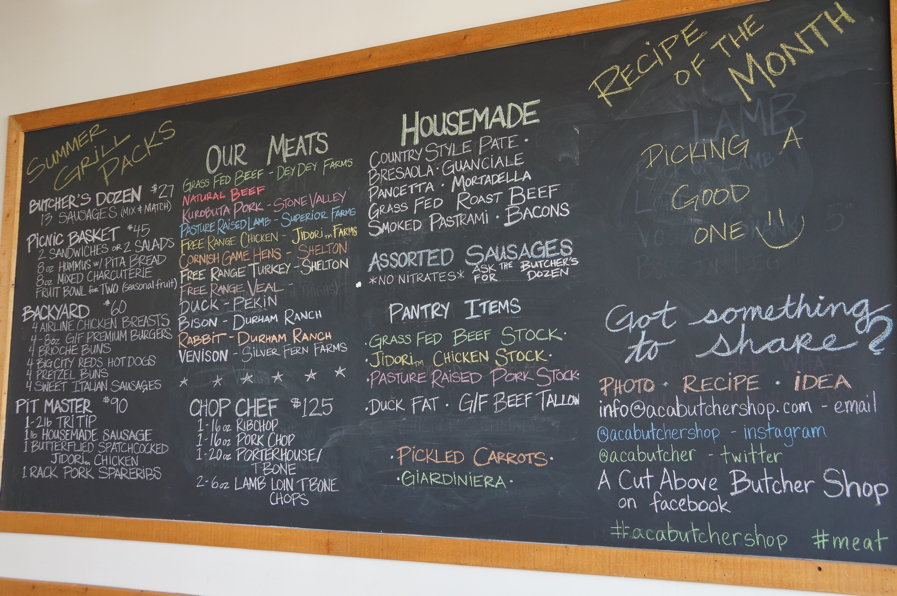 SUMMER
GRILL
PACKS
BUTCHER'S DOZEN $27
13 SAUSAGES (MIX & MATCH)
PICNIC BASKET $45
2 SANDWICHES OR 2 SALADS
8oz HUMMUS w/ PITA BREAD
8oz MIXED CHARCUTERIE
FRUIT BOWL for TWO (seasonal fruit)
BACKYARD $60
4 AIRLINE CHICKEN BREASTS
4 - 6oz GIF PREMIUM BURGERS
4 BRIOCHE BUNS
4 BIG CITY REDS HOT DOGS
4 PRETZEL BUNS
4 SWEET ITALIAN SAUSAGES
PIT MASTER $90
1 - 2lb TRI TIP
1lb HOUSEMADE SAUSAGE
1 BUTTERFLIED SPATCHCOCKED
JIDORI CHICKEN
1 RACK PORK SPARERIBS
OUR MEATS
GRASS FED BEEF - DEY DEY FARMS
NATURAL BEEF
KUROBUTA PORK - STONE VALLEY
PASTURE RAISED LAMB - SUPERIOR FARMS
FREE RANGE CHICKEN - JIDORI TM FARMS
CORNISH GAME HENS - SHELTON
FREE RANGE TURKEY - SHELTON
FREE RANGE VEAL -
DUCK - PEKIN
BISON - DURHAM RANCH
RABBIT - DURHAM RANCH
VENISON - SILVER FERN FARMS
CHOP CHEF $125
1 - 16oz RIBCHOP
1 - 16oz PORK CHOP
1 - 20oz PORTERHOUSE/
TBONE
2 - 6oz LAMB LOIN TBONE
CHOPS
HOUSEMADE
COUNTRY STYLE PATE ·
BRESAOLA · GUANCIALE
PANCETTA · MORTADELLA
GRASS FED ROAST BEEF
SMOKED PASTRAMI · BACONS
ASSORTED SAUSAGES
*NO NITRATES* ASK THE BUTCHER'S
FOR DOZEN
PANTRY ITEMS
GRASS FED BEEF STOCK ·
JIDORI TM CHICKEN STOCK ·
· PASTURE RAISED PORK STOCK ·
· DUCK FAT · GIF BEEF TALLOW
· PICKLED CARROTS ·
· GIARDINIERA ·
RECIPE
OF THE
MONTH
LAMB
PICKING A
GOOD
ONE!!
Got something
to share?
PHOTO · RECIPE · IDEA
info@acabutchershop.com - email
@acabutchershop - instagram
@acabutcher - twitter
A Cut Above Butcher Shop
on facebook
#acabutchershop #meat